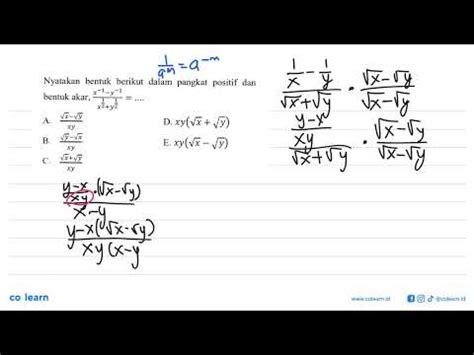 1/a^m = a^-m
Nyatakan bentuk berikut dalam pangkat positif dan
bentuk akar, (x^-1 - y^-1)/(x^(1/2) + y^(1/2)) = ....
A. (√x - √y)/xy
B. (√y - √x)/xy
C. (√x + √y)/xy
D. xy(√x + √y)
E. xy(√x - √y)
(1/x - 1/y)/(√x + √y) · (√x - √y)/(√x - √y)
((y - x)/xy)/(√x + √y) · (√x - √y)/(√x - √y)
((y - x)/xy · (√x - √y))/(x - y)
(y - x(√x - √y))/(xy(x - y
co learn
www.colearn.id
@colearn.id